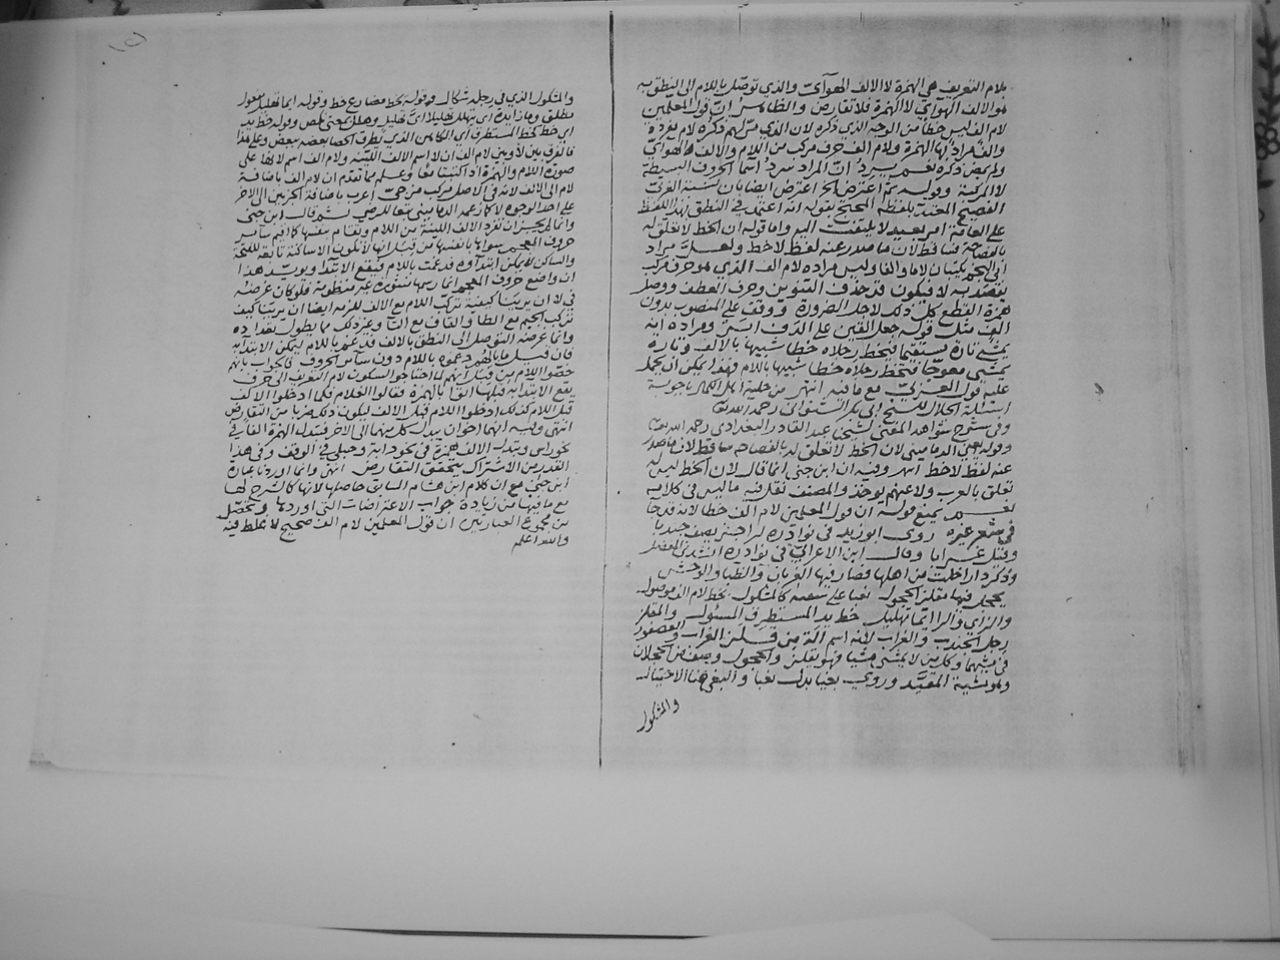 بلام التعريف هي الهمزة لا الالف الهوائي والذي توصل باللام الى النطق به
هو الالف الهوائي لا الهمزة فلا تقارض والظاهر ان قول المعلمين
لام الف ليس خطأ من الوجه الذي ذكره لان الذي
والف مراد بها الهمزة ولام الف حرف مركب من اللام والالف الهوائي
ولم يمض ذكره نعم يرد ان المراد سرد اسما الحروف البسيطة
لا المركبة وقوله ثم اعترض الخ اعترض ايضا بان
الفصيح
على العامة امر بعيد لا يلتفت اليه واما قوله ان الخط لا تعلق له
بالفصاحة فساقط لان ما صدر عنه لفظ لا خط ولعل مراد
ابي النجم يكتبان لاما والفا وليس مراده لام الف الذي هو حرف مركب
فيكون قد حذف التنوين وحرف العطف ووصل
همزة القطع كل ذلك لاجل الضرورة ووقف على المنصوب بدون
الف مثل قوله جعل القين على الدف ابر ومراده انه
يمشي تارة مستقيما فتخط رجلاه خطا شبيها بالالف وتارة
يمشي معوجا فتخط رجلاه خطا شبيها باللام فهذا يمكن ان يحمل
عليه قول مع ما فيه انتهى من حلية اهل الكمال باجوبة
اسئلة الجلال للشيخ ابي بكر الشنواني رحمه الله
وفي شرح شواهد المغني لشيخنا عبد القادر البغدادي رحمه الله
وقوله يعني الدماميني لان الخط لا تعلق له بالفصاحة ساقط لان ما صدر
عنه لفظ لا خط انتهى وفيه ان ابن جني انما قال لان الخط ليس له
تعلق بالعرب ولا عنهم يؤخذ والمصنف نقل فيه ما ليس في كلامه
نعم يمنع قوله ان قول المعلمين لام الف خطا لانه قد جا
في شعر غيره روى ابو زيد في نوادره لراجز يصف جنديا
وقيل غرابا وقال ابن الاعرابي في نوادره انشدني المفضل
وذكر دارا خلت من اهلها فصار فيها الغربان والظبا والوحش
يحجل فيها مقلز الحجول نغبا على شقيه كالمشكول يخط لام الف موصول
والزاي والرا ايما تهليل خط يد المستطرق المسئول والمقلز
رجل الجندب والغراب لانه اسم الة من قلز الغراب والعصفور
في مشيهما وكل من لا يمشي مشيا فهو يقلز والحجول وصف من الحجلان
وهو مشية المقيد وروي بغيا بدل نغبا والبغي هنا الاختيال
والمشكول
والمشكول الذي في رجله شكال وقوله يخط مضارع خط وقوله ايما تهليل مفعول
مطلق وما زايدة اي تهلل تهليلا اي تهليل وهلل بمعنى نكص وقوله خط يد
اي خط كخط المستطرق اي الكاهن الذي يطرق الحصا بعضه ببعض وعلى هذا
فالفرق بين لا وبين لام الف ان لا اسم الالف اللينة ولام الف اسم لا بها على
صورة اللام والهمزة اذا كتبتا معا وعلم مما تقدم ان لام الف باضافة
لام الى الالف لانه في الاصل مركب مزجي اعرب باضافة احد جزئين الى الاخر
على احد الوجوه لا كما زعمه الدماميني تبعا للرضي ثم قال ابن جني
وانما لم يجز ان تفرد الالف اللينة من اللام وتقام بنفسها كما اقيم سائر
حروف المعجم سواها بانفسها من قبل انها لا تكون الا ساكنة تابعة للفتحة
والساكن لا يمكن ابتداؤه فدعمت باللام فيقع الابتدا ويؤيد هذا
ان واضع حروف المعجم انما رسمها منثورة غير منظومة فلو كان غرضه
في لا ان يرينا كيفية تركب اللام مع الالف للزمه ايضا ان يرينا كيف
تركب الجيم مع الطا والقاف مع التا وغير ذلك مما يطول تعداده
وانما غرضه التوصل الى النطق بالالف فدعم باللام ليمكن الابتدا به
فان قيل ما بالهم دعموه باللام دون سائر الحروف فالجواب بانهم
خصوا اللام من قبل انهم لما احتاجوا لسكون لام التعريف الى حرف
يقع الابتدا به قبلها اتوا بالهمزة فقالوا الغلام فكما ادخلوا الالف
قبل اللام كذلك ادخلوا اللام قبل الالف ليكون ذلك ضربا من التقارض
انتهى وفيه انهما اخوان يبدل كل منهما الى الاخر فتبدل الهمزة الفا في
نحو راس وتبدل الالف همزة في نحو دابة وحبلى في الوقف وفي هذا
القدر من الاشتراك يتحقق التقارض انتهى وانما اوردنا عبارة
ابن جني مع ان كلام ابن هشام السابق حاصلها لانها كالشرح لها
مع ما فيها من زيادة جواب الاعتراضات التي اوردها وتحصل
من مجموع العبارتين ان قول المعلمين لام الف صحيح لا غلط فيه
والله اعلم